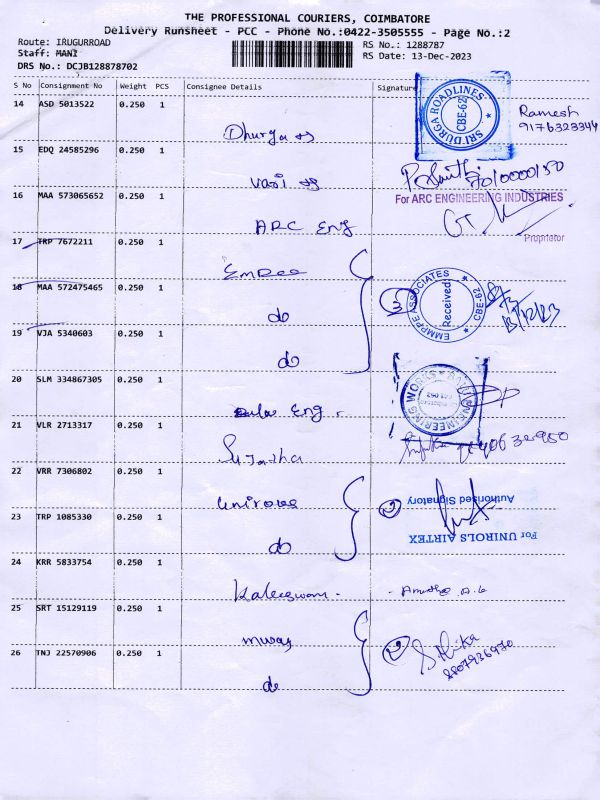 THE PROFESSIONAL COURIERS, COIMBATORE
Delivery Runsheet - PCC - Phone No.:0422-3505555 - Page No.:2
Route: IRUGURROAD
Staff: MANI
DRS No.: DCJB128878702
RS No.: 1288787
RS Date: 13-Dec-2023
S No Consignment No Weight PCS Consignee Details Signature
14 ASD 5013522 0.250 1
Dhurga
SRI DURGA ROADLINES
CBE-62
Ramesh
9176323344
15 EDQ 24585296 0.250 1
Vari
7010000150
16 MAA 573065652 0.250 1
ARC Eng
For ARC ENGINEERING INDUSTRIES
Proprietor
17 TRP 7672211 0.250 1
Empee
18 MAA 572475465 0.250 1
do
3
EMMPPE ASSOCIATES
Received
CBE-62
13/12/23
19 VJA 5340603 0.250 1
do
20 SLM 334867305 0.250 1
Eng.
ENGINEERING WORKS
21 VLR 2713317 0.250 1
Sujatha
22 VRR 7306802 0.250 1
Unirols
23 TRP 1085330 0.250 1
do
2
For UNIROLS AIRTEX
Authorised Signatory
24 KRR 5833754 0.250 1
Kaleeswari -
25 SRT 15129119 0.250 1
26 TNJ 22570906 0.250 1
do
2
8807936970